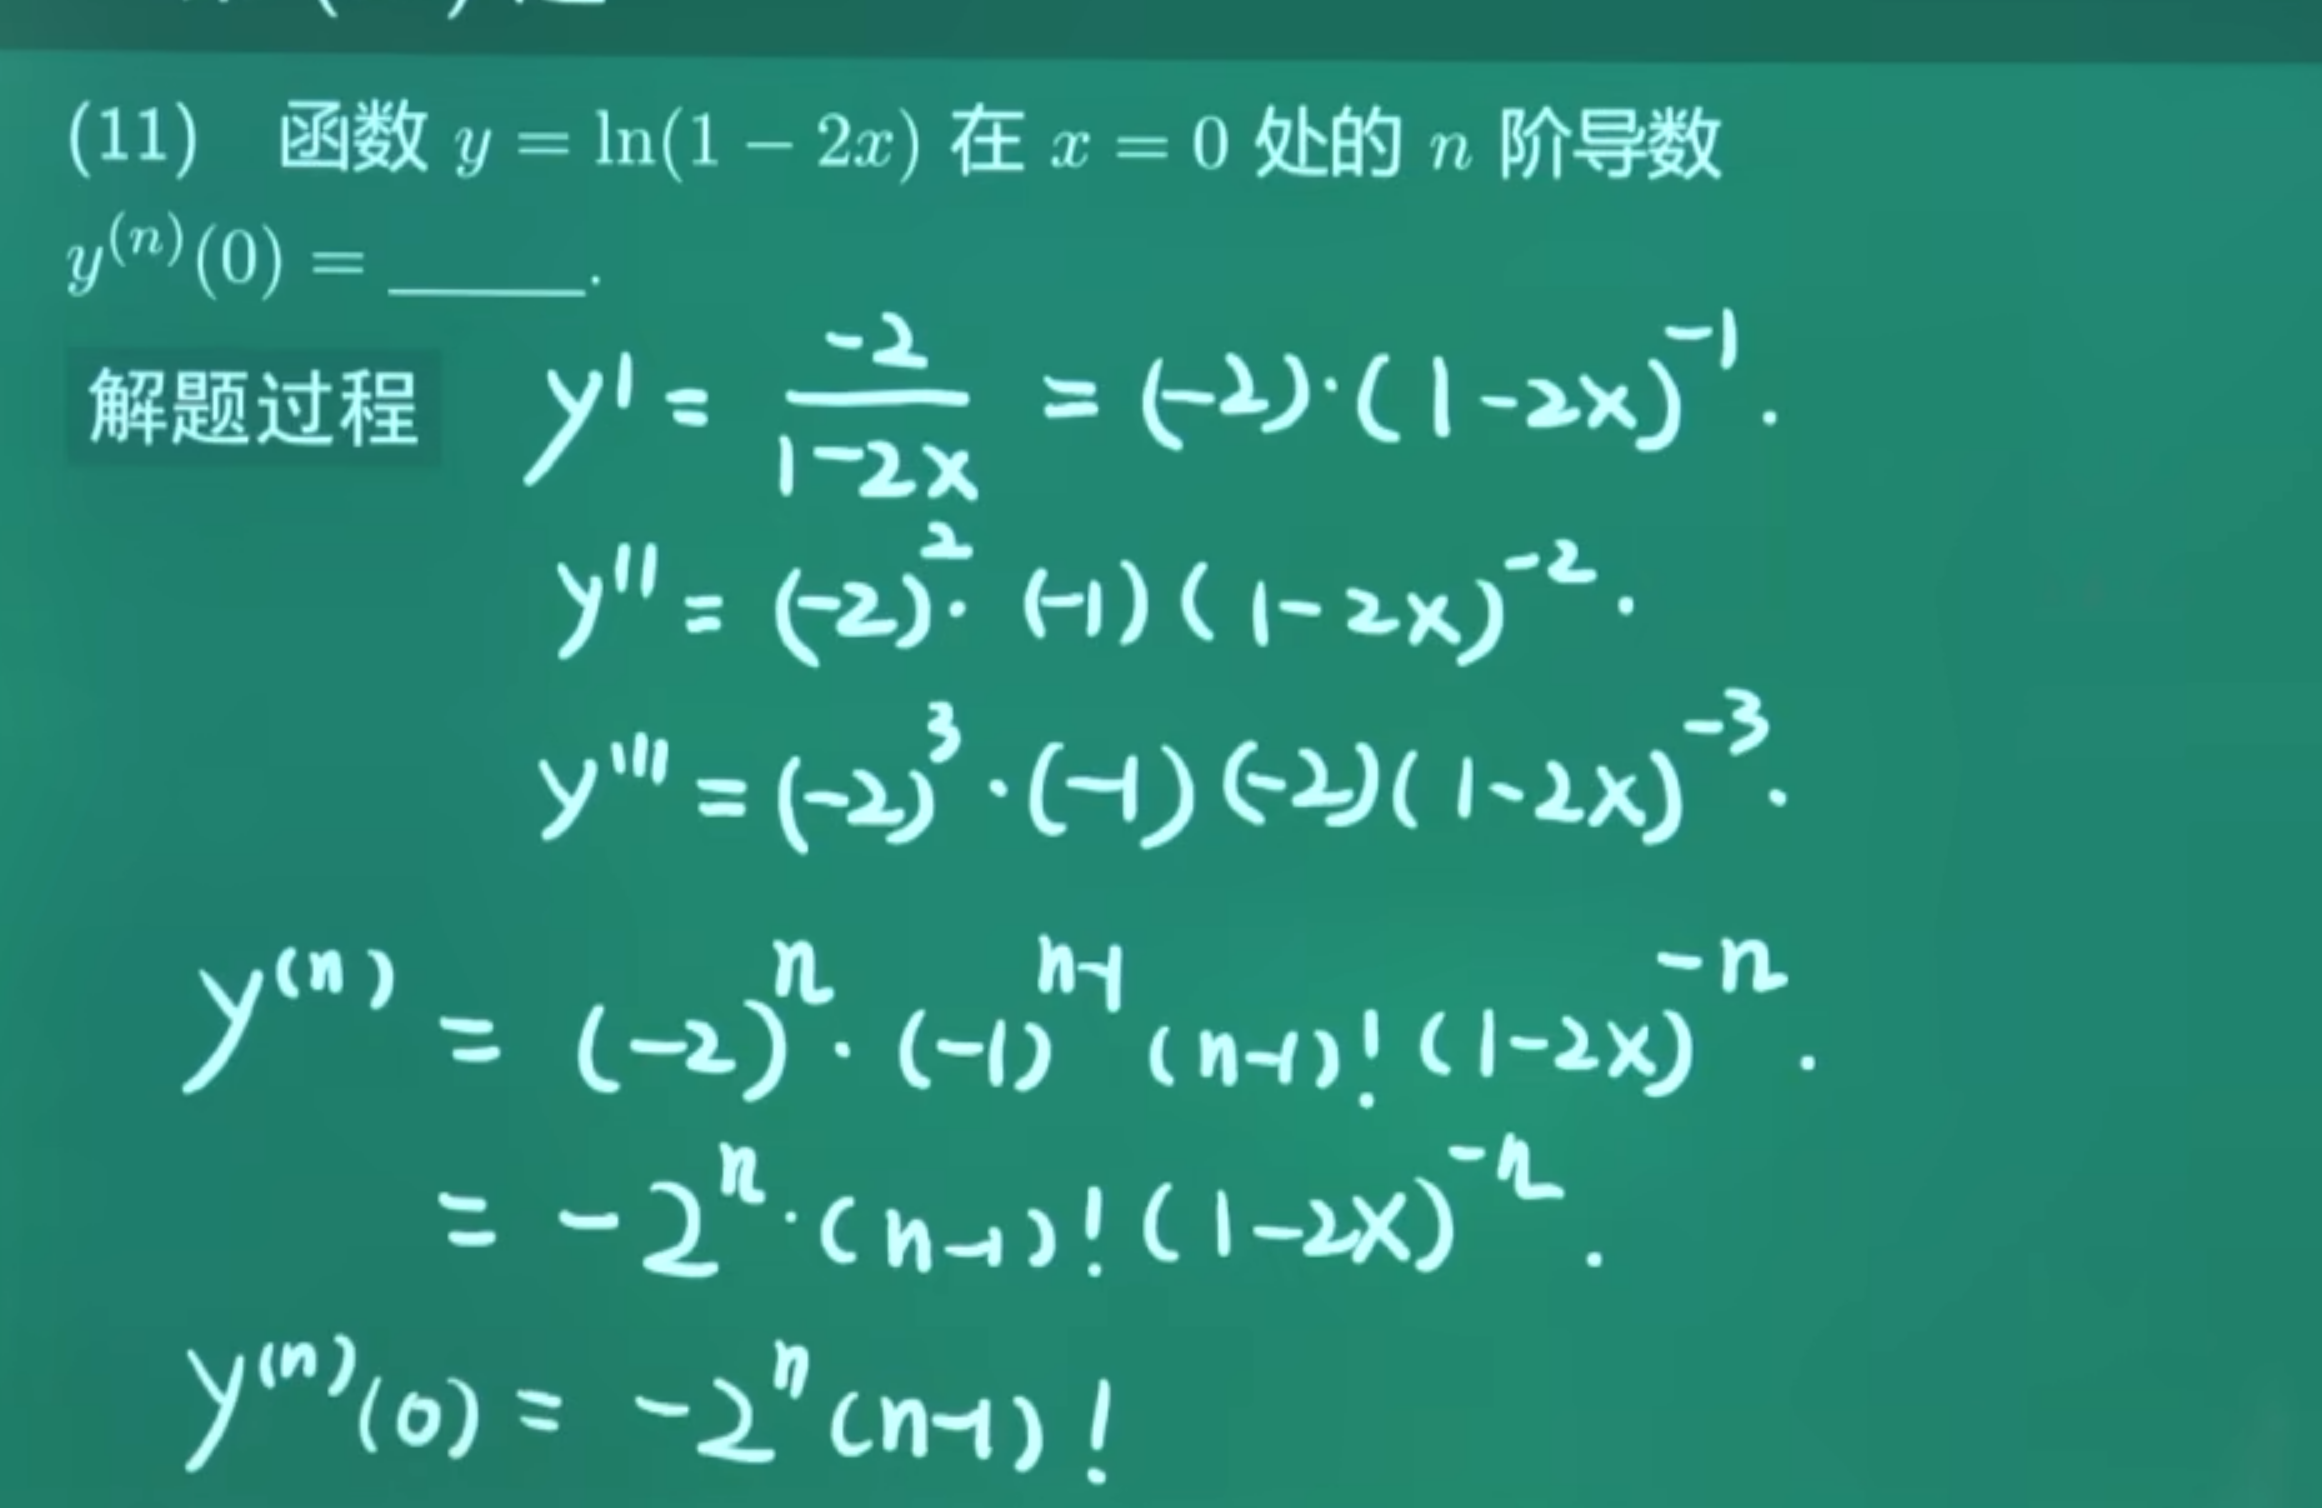 (11) 函数 y = ln(1 − 2x) 在 x = 0 处的 n 阶导数
y^{(n)}(0) = _____.
解题过程 y' = \frac{-2}{1-2x} = (-2)·(1-2x)^{-1}.
y'' = (-2)^2·(-1)(1-2x)^{-2}.
y''' = (-2)^3·(-1)(-2)(1-2x)^{-3}.
y^{(n)} = (-2)^n·(-1)^{n-1}(n-1)!(1-2x)^{-n}.
= -2^n·(n-1)!(1-2x)^{-n}.
y^{(n)}(0) = -2^n(n-1)!